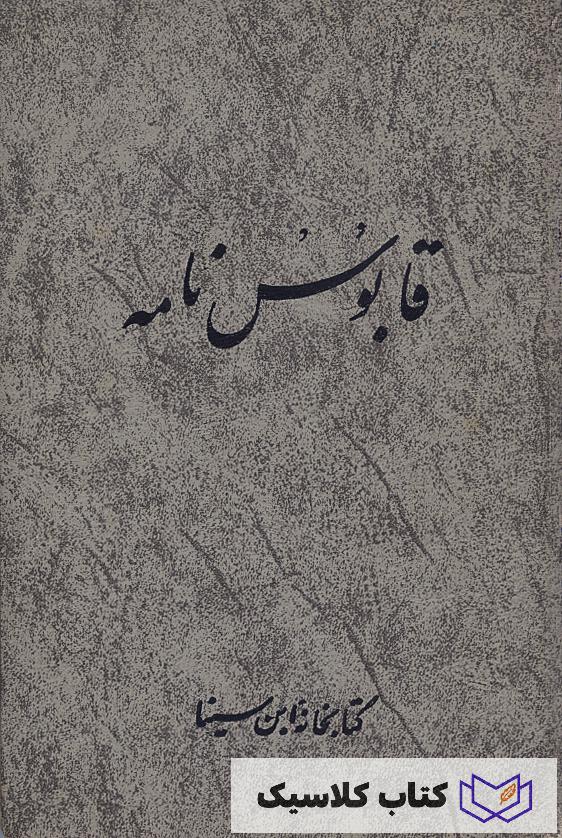 قابوس نامه
کتابخانه ابن سینا
کتاب کلاسیک